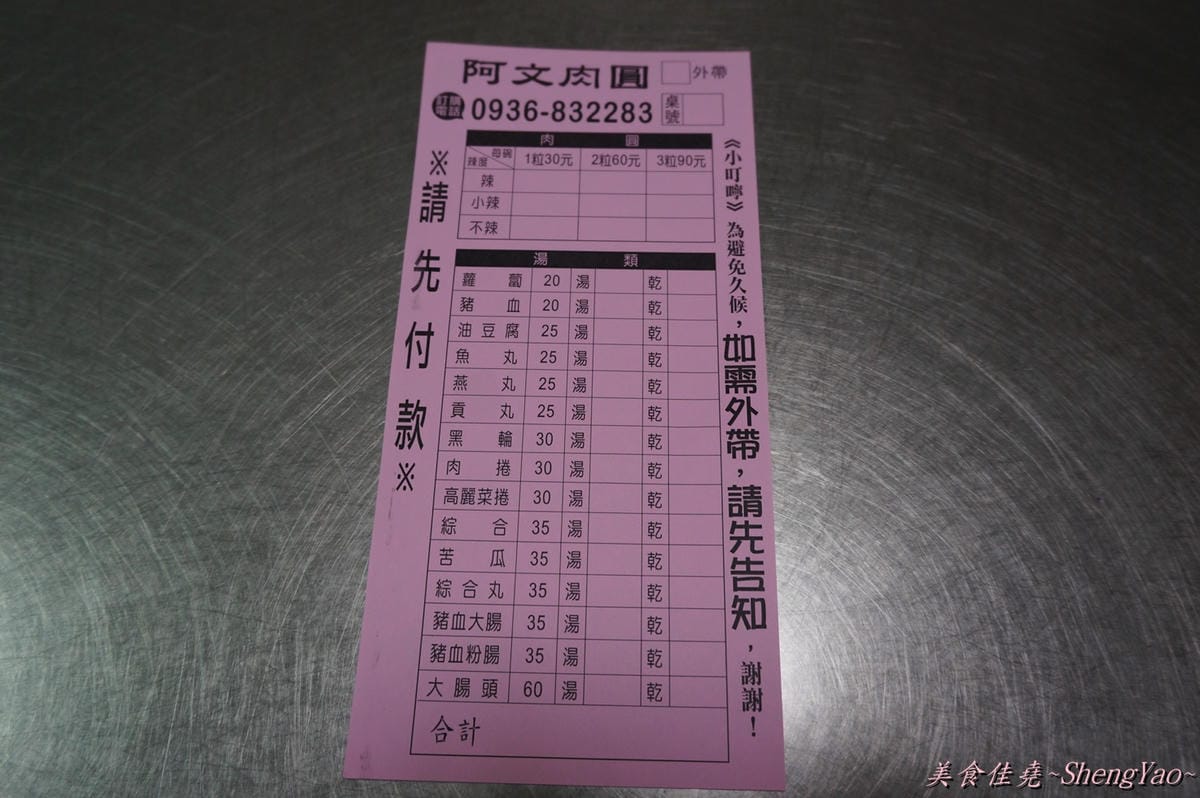 阿文肉圓
外帶
訂購電話
0936-832283
桌號
肉 圓
每碗 辣度 1粒30元 2粒60元 3粒90元
辣
小辣
不辣
湯 類
蘿蔔 20 湯 乾
豬血 20 湯 乾
油豆腐 25 湯 乾
魚丸 25 湯 乾
燕丸 25 湯 乾
貢丸 25 湯 乾
黑輪 30 湯 乾
肉捲 30 湯 乾
高麗菜捲 30 湯 乾
綜合 35 湯 乾
苦瓜 35 湯 乾
綜合丸 35 湯 乾
豬血大腸 35 湯 乾
豬血粉腸 35 湯 乾
大腸頭 60 湯 乾
合計
※請先付款※
《小叮嚀》為避免久候，如需外帶，請先告知，謝謝！
美食佳堯~ShengYao~